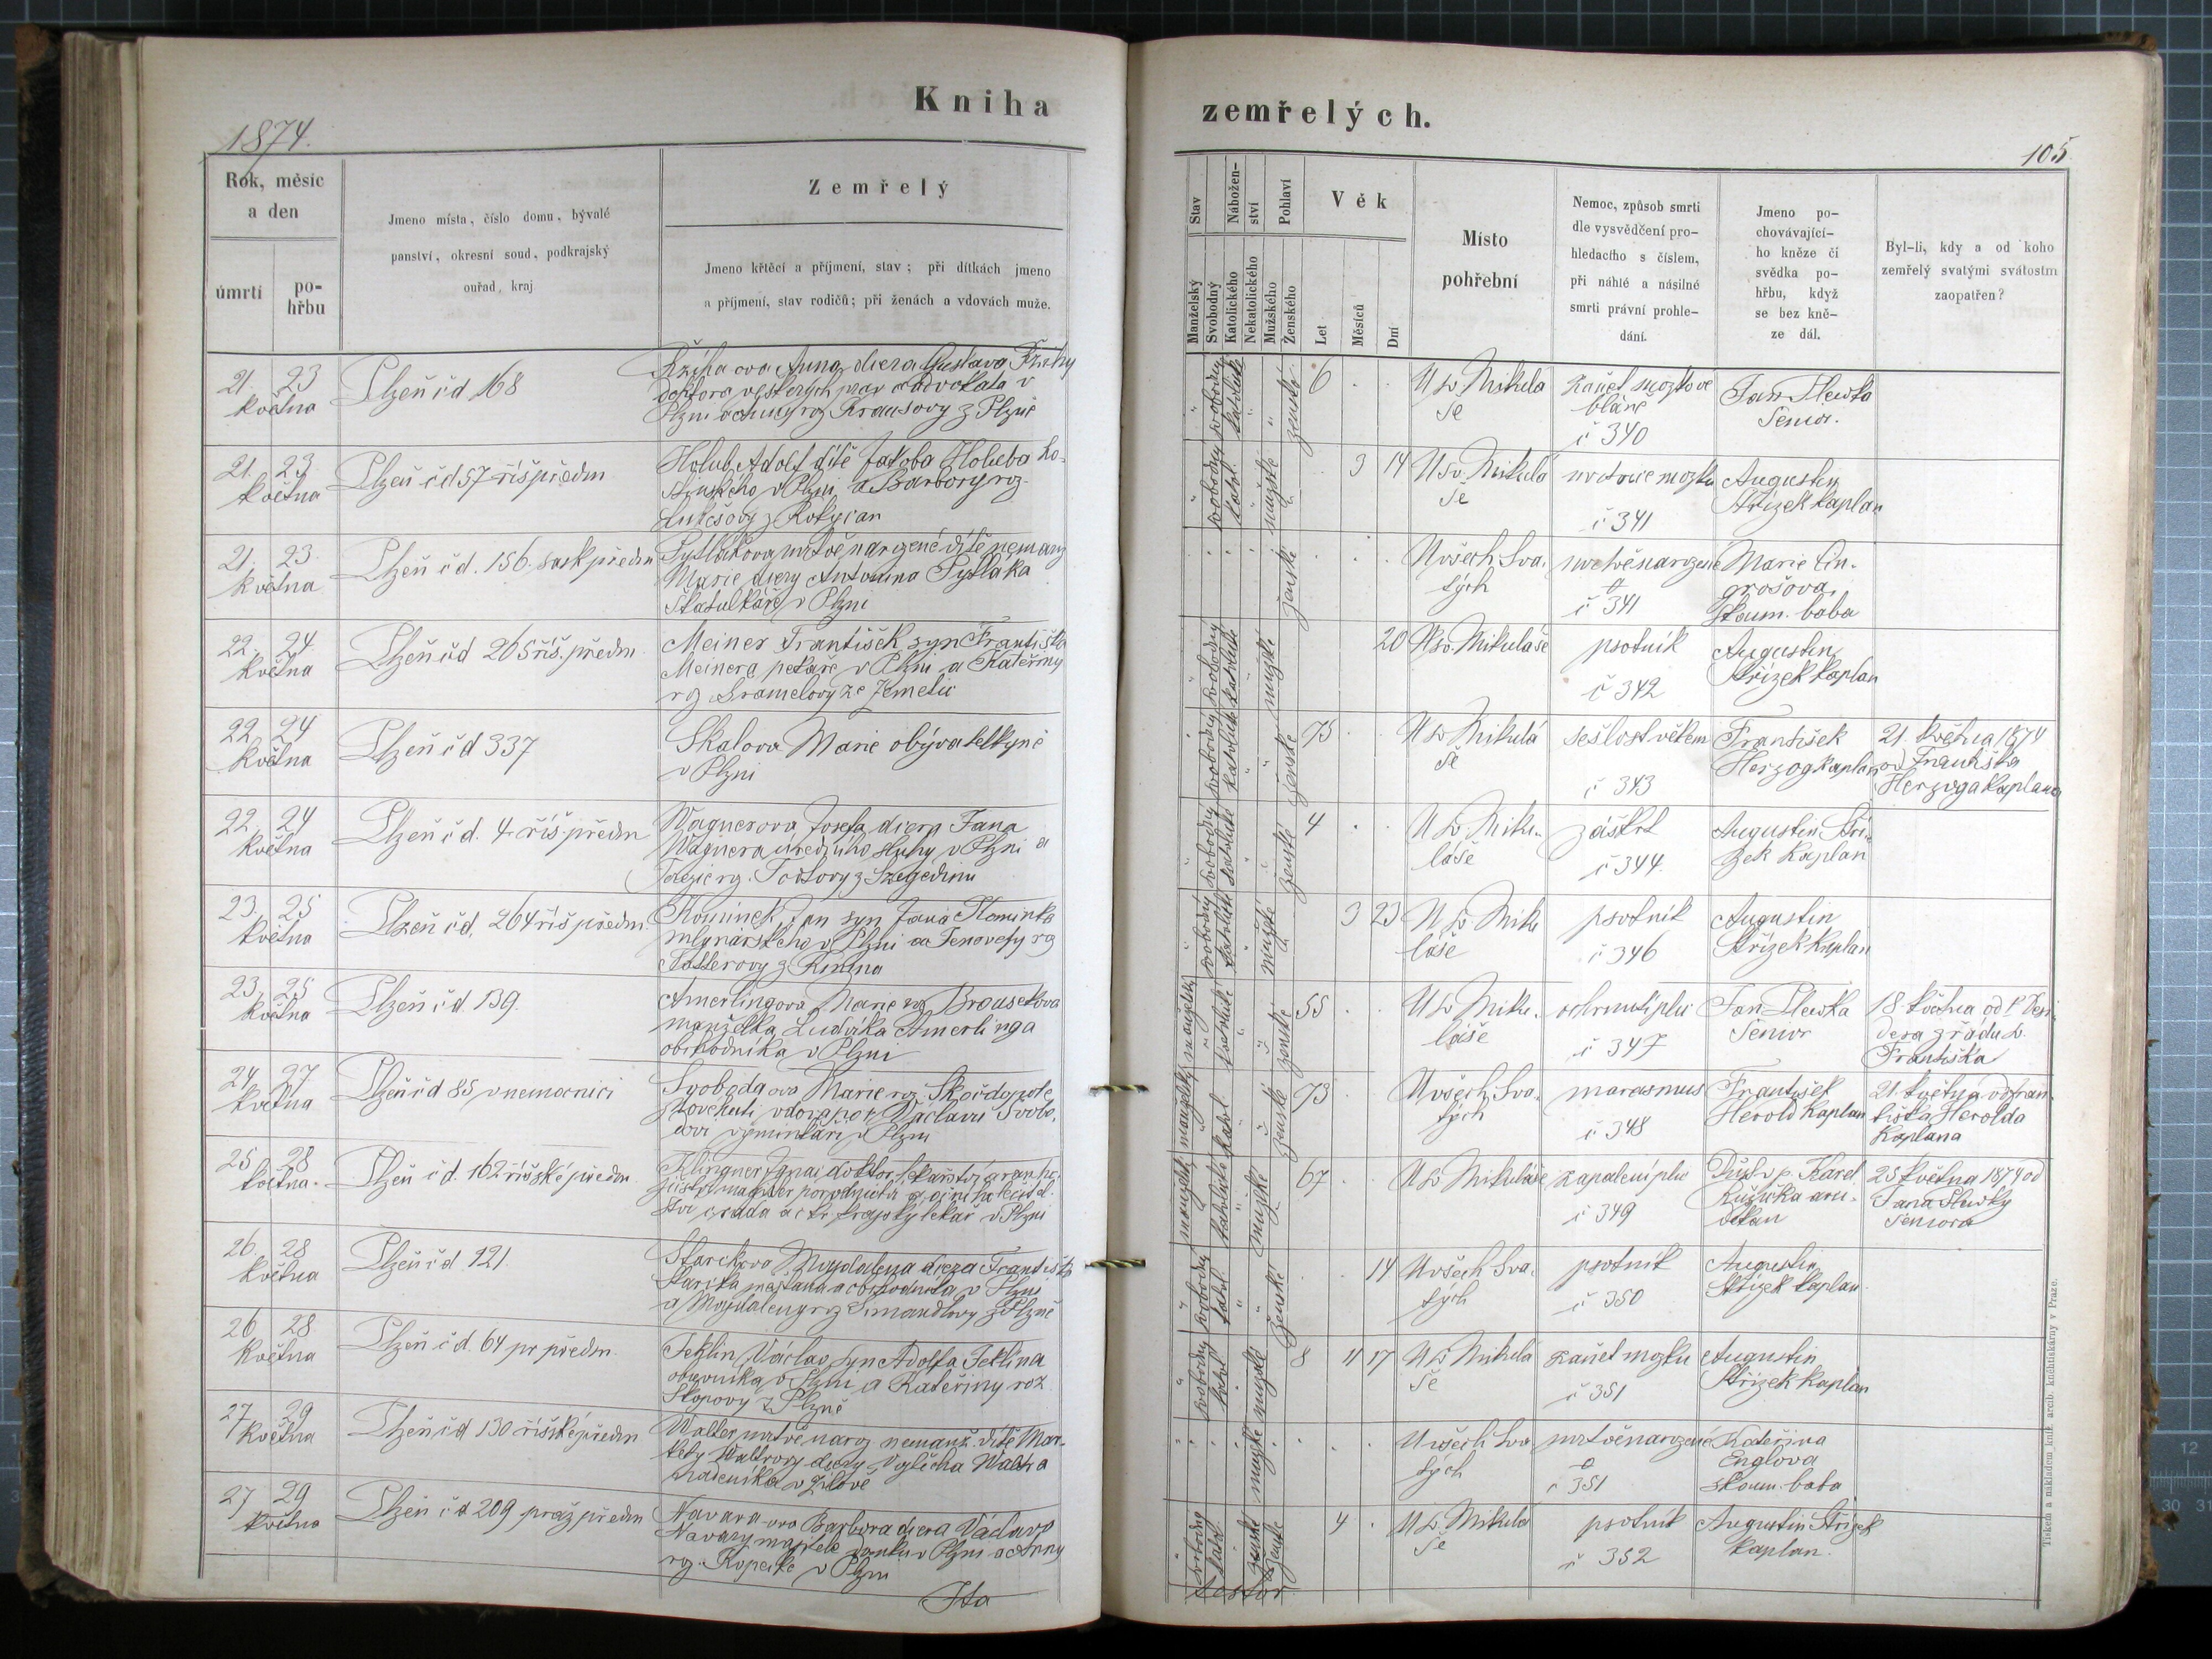 Kniha
zemřelých.
1874.
105
Rok, měsíc
a den
úmrtí
po-
hřbu
Jmeno místa, číslo domu, bývalé
panství, okresní soud, podkrajský
ouřad, kraj
Zemřelý
Jmeno křtěcí a příjmení, stav; při dítkách jmeno
a příjmení, stav rodičů; při ženách a vdovách muže.
Stav
Nábožen-
ství
Pohlaví
Manželský
Svobodný
Katolického
Nekatolického
Mužského
Ženského
Věk
Let
Měsíců
Dní
Místo
pohřební
Nemoc, způsob smrti
dle vysvědčení pro-
hledacího s číslem,
při náhlé a násilné
smrti právní prohle-
dání.
Jmeno po-
chovávající-
ho kněze či
svědka po-
hřbu, když
se bez kně-
ze dál.
Byl-li, kdy a od koho
zemřelý svatými svátostmi
zaopatřen?
21. 23
května
Plzeň čd 168
Anna dcera Gustava
doktora veškerých práv a advokata v
Plzni a Anny roz Krausovy z Plzně
svobodný
katolické
ženské
6
U sv. Mikulá
še
zánět mozkové
blány
č 340
Jan Slewka
Senior.
21. 23
května
Plzeň č d 57 říš předm
Holub Adolf dítě Jakoba Holuba ho-
stinského v Plzni a Barbory roz.
Lukešovy z Rokycan
svobodný
katol.
mužské
3 14
U sv. Mikulá
še
mozku
č 341
Augustin
Střízek kaplan
21. 23.
května
Plzeň č d. 156. sask předm
Pytlákova mrtvě narozené dítě nemanž
Marie dcery Antonina Pytláka
v Plzni
ženské
U všech Sva.
tých
mrtvě narozené
č 341
Marie Cin-
grošova,
zkoum. baba
22. 24.
května
Plzeň čd 205 říš. předm.
Meiner František syn Františka
Meinera pekaře v Plzni a Kateřiny
rz Šramelovy ze Zemětic
svobodný
katolické
mužské
20
U sv. Mikuláše
psotník
č 342
Augustin
Střízek kaplan
22. 24
května
Plzeň č d 337
Skalova Marie obývatelkyně
v Plzni
svobodný
katolické
ženské
75
U sv Mikulá
še
sešlost věkem
č 343
František
Herzog kaplan
21. května 1874
od Františka
Herzoga kaplana
22. 24
května
Plzeň č d. 4 říš předm
Wagnerova Josefa dcera Jana
Wagnera úředního sluhy v Plzni a
z Szegedinu
svobodný
katolické
ženské
4
U sv. Miku-
láše
záškrt
č 344.
Augustin Stří-
zek kaplan
23. 25
května
Plzeň č d. 264 říš předm.
Kominek Jan syn Jana Kominka
mlynářského v Plzni a Jenovefy rz
svobodný
katolické
mužské
3 23
U sv Miku
láše
psotník
č 346
Augustin
Střízek kaplan
23. 25
května
Plzeň č d. 139.
Amerlingova Marie rz Brousekova
manželka Ludvíka Amerlinga
obchodníka v Plzni
manželský
katolické
ženské
55
U sv Miku-
láše
ochrnutí plic
č 347
Jan Slewka
Senior
18. května od P. Desi-
dera z řádu sv.
Františka
24. 27
května
Plzeň č d 85 v nemocnici
Svobodova Marie rz. Skočdopole
vdova po Václavu Svobo-
dovi výminkáři v Plzni
manželský
katol
ženské
73
U všech Sva-
tých
marasmus
č 348
František
Herold kaplan
21. května od Fran
tiška Herolda
kaplana
25 28
května.
Plzeň č d. 162 říšské předm.
Klingner Ignac doktor lékařství a ran ho
jičství magister porodnictví
krajský lékař v Plzni
manželský
katolické
mužské
67
U sv Mikuláše
zapalení plic
č 349
Důst. p. Karel
Ružička arci-
děkan
25 května 1874 od
Jana Slewky
Seniora
26. 28
května
Plzeň č d 121.
Starckova Magdalena dcera Františka
Starcka měšťana a obchodníka v Plzni
a Magdaleny roz Simandlovy z Plzně
svobodný
katol.
ženské
14
U všech Sva-
tých
psotník
č 350
Augustin
Střízek kaplan.
26 28
května
Plzeň č d. 64 pr předm.
Teklin Václav syn Adolfa Teklina
obuvníka v Plzni a Kateřiny roz
Skopovy z Plzně
svobodný
katol
mužské
8 11 17
U sv Mikulá
še
zánět mozku
č 351
Augustin
Střízek kaplan
27. 29
května
Plzeň č d 130 říšské předm
Walter mrtvě naroz nemanž. dítě Mar-
kéty Waltrovy dcery Vojtěcha Waltra
v Žilově
mužské
U všech Sva
tých
mrtvě narozené
č 351
Kateřina
Englova
zkoum. baba
27 29
května
Plzeň č d 209 praž předm
Navara ova Barbora dcera Václava
Navary majitele domku v Plzni a Anny
rz. Kopecké v Plzni
svobodný
katol.
ženské
4
U sv. Mikulá
še
psotník
č 352
Augustin Střízek
kaplan.
Tiskem a nákladem kníž. arcib. knihtiskárny v Praze.